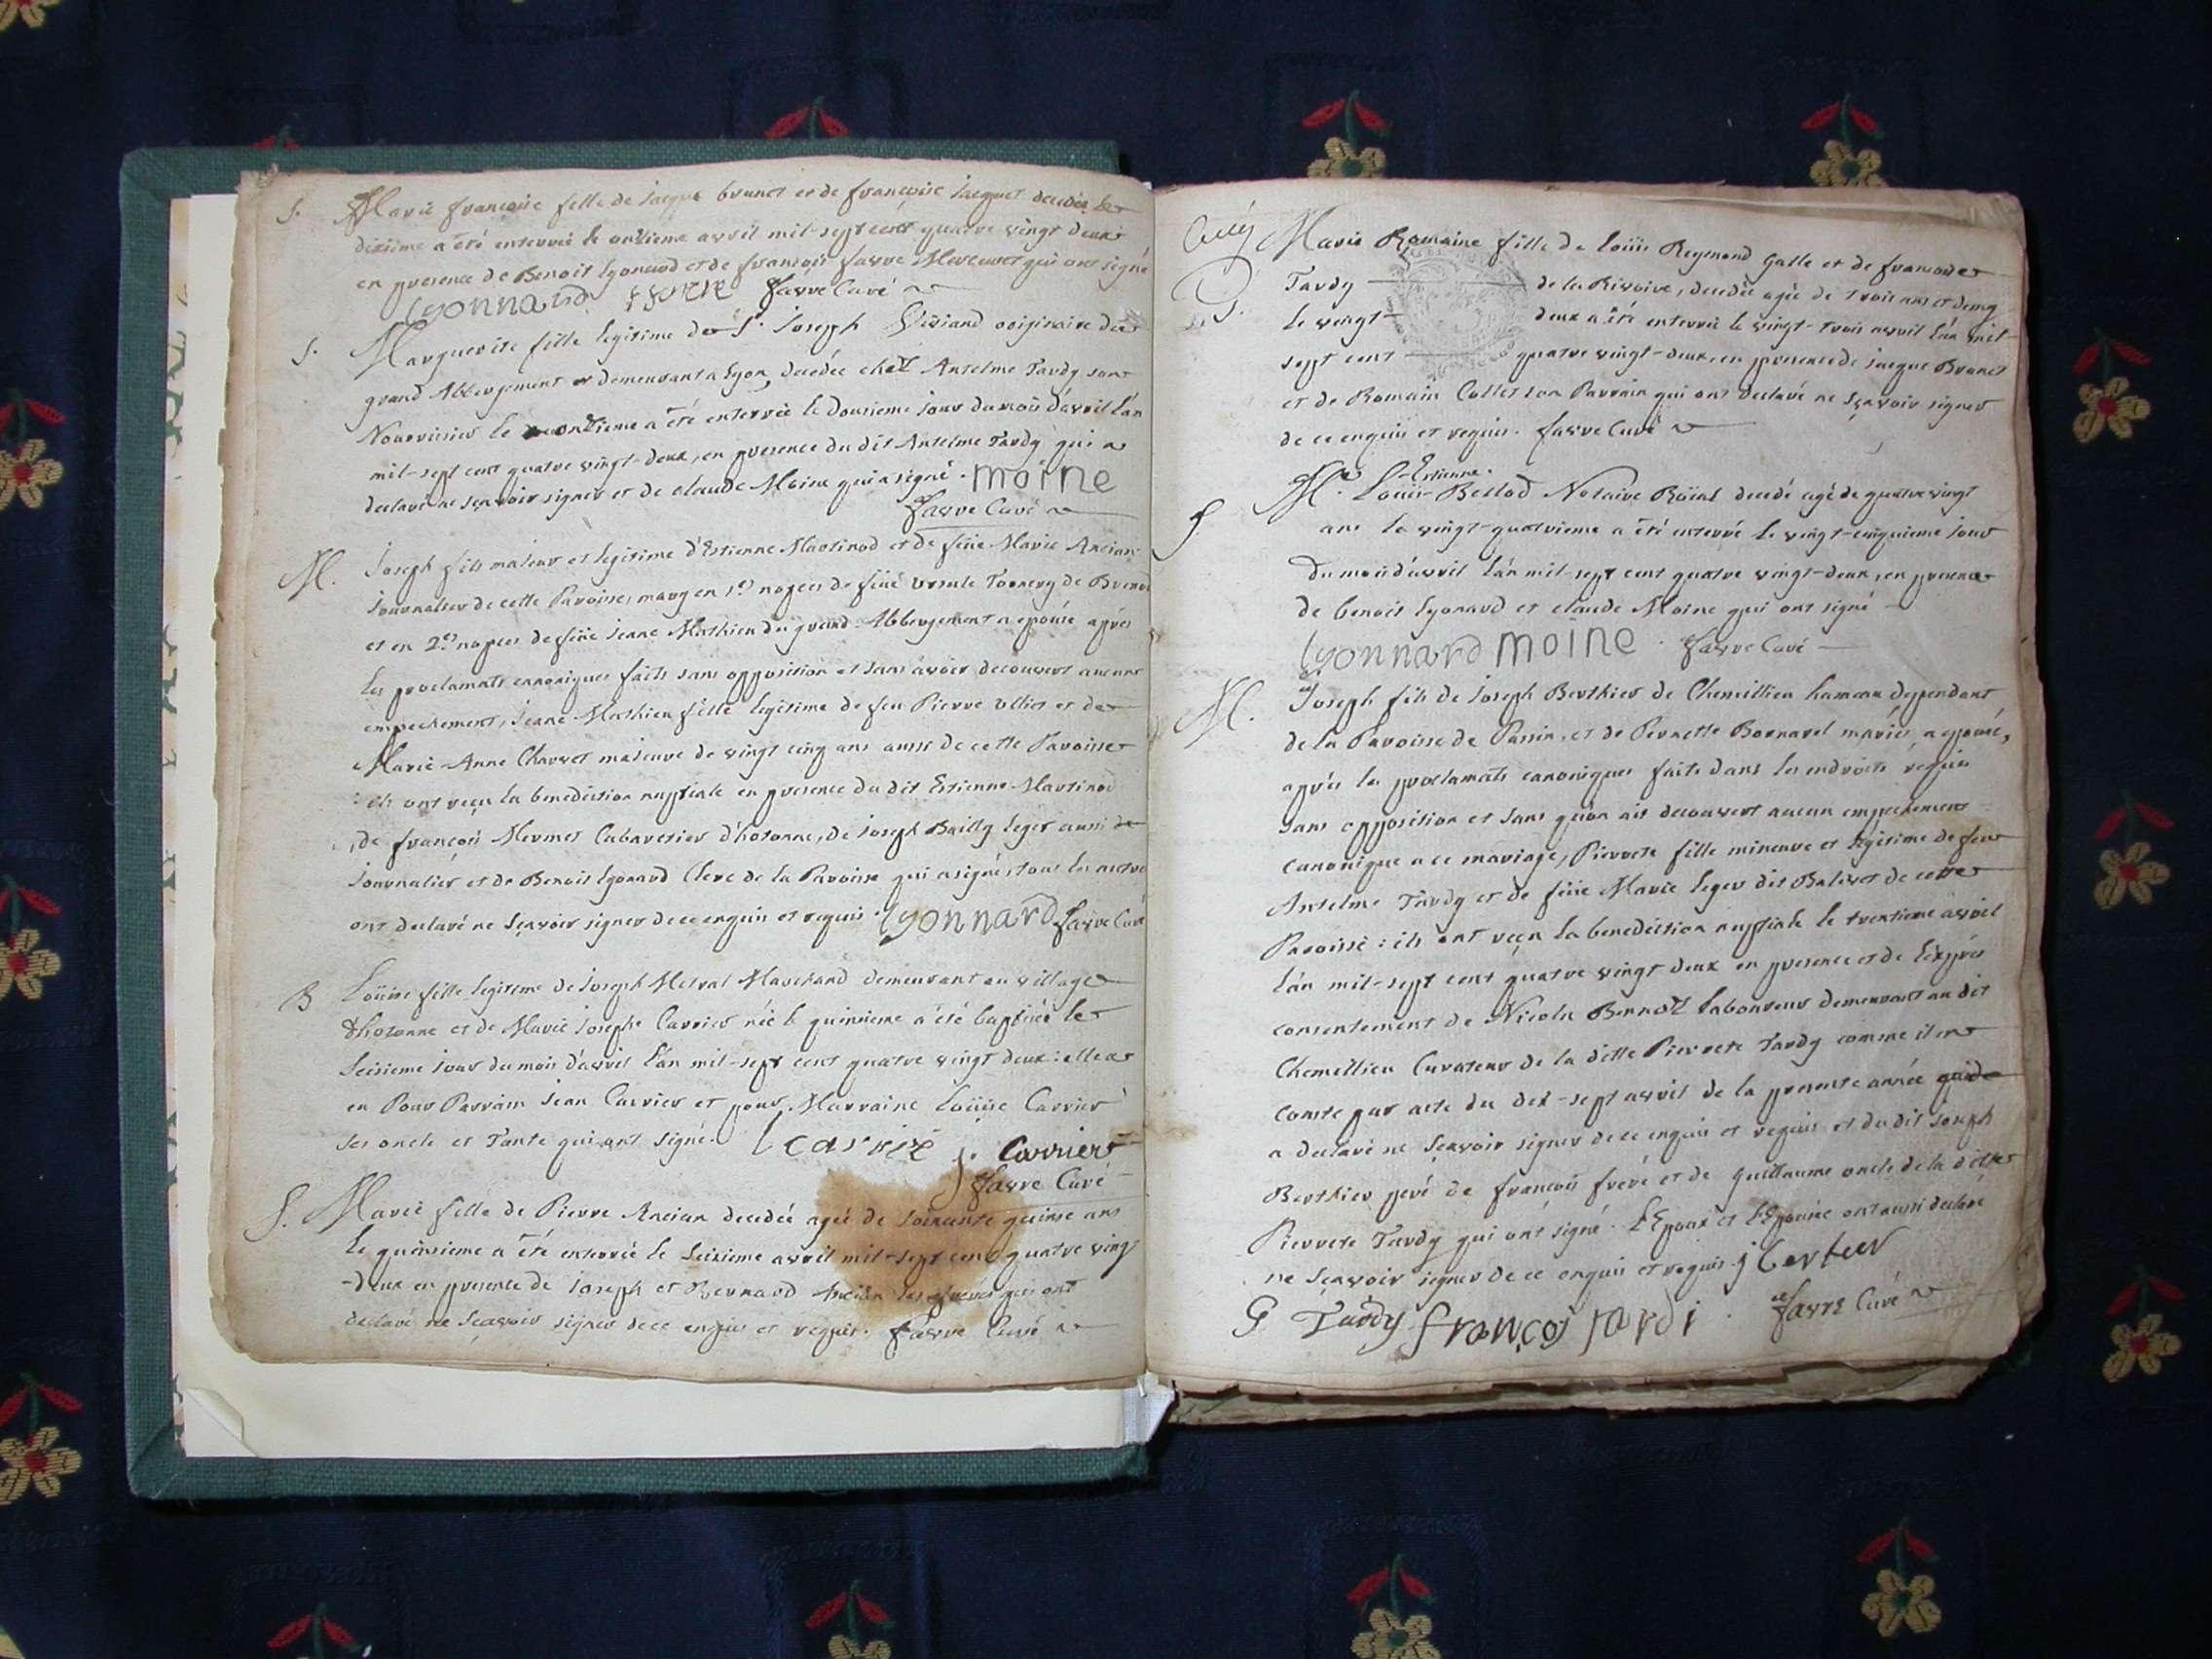 S. Marie françoise fille de Jacque brunet et de françoise Jacquet decedée le
dixiéme a été enterrée le onzieme avvril mil-sept cent quatre vingt deux
en presence de Benoit lyonnard et de françois favre Mercuret qui ont signé
lyonnard favre Curé
S. Marguerite fille legitime de Sr. Joseph originaire de
grand Abbergement et demeurant a Lyon, decedée chez Anselme Tardy son
Nourricier le onzieme a été enterrée le dousieme jour du mois d'avvril l'an
mil-sept cent quatre vingt-deux, en presence du dit Anselme Tardy qui a
declaré ne sçavoir signer et de claude Moine qui a signé. moine
favre Curé
M. Joseph fils majeur et legitime d'Estienne Martinod et de feüe Marie Ancian
Journalier de cette Paroisse, marg en 1es nopces de feüe Ursule de
et en 2es nopces de feüe Jeane Mathieu du grand-Abbergement a epousé aprés
les proclamats canoniques faits sans opposition et sans avoir decouvert aucun
empechement, Jeane-Mathieu fille legitime de feu Pierre et de
Marie-Anne Charvet majeure de vingt cinq ans aussi de cette Paroisse
: ils ont reçu la benediction nuptiale en presence du dit Estienne Martinod
, de françois Mermet Cabaretier d'hotonne, de Joseph Bailly leger aussi
journalier et de Benoit lyonard Clerc de la Paroisse qui a signé, tous les autres
ont declaré ne sçavoir signer de ce enquis et requis. lyonnard favre Curé
B Loüise fille legitime de Joseph Metral Marchand demeurant au village
d'hotonne et de Marie Josephe Carrier née le quinzieme a été baptisée le
seizieme jour du mois d'avvril l'an mil-sept cent quatre vingt deux: elle a
eu Pour Parrain Jean Carrier et pour Marraine Loüise Carrier
ses oncle et Tante qui ont signé. l carrié j. Carrier
favre Curé
S. Marie fille de Pierre Ancian decedée agée de soixante quinse ans
le quinzieme a été enterrée le seizieme avvril mil-sept cent quatre vingt
-deux en presence de Joseph et Bernard Ancian ses freres qui ont
declaré ne sçavoir signer de ce enquis et requis. favre Curé
Marie Romaine fille de loüis Reymond Galle et de francoise
S. Tardy de la Rivoire, decedée agée de trois ans et demy
le vingt-deux a été enterrée le vingt-trois avvril l'an mil-
sept cent quatre vingt-deux, en presence de Jacque Brunet
et de Romain Collet son Parrain qui ont declaré ne sçavoir signer
de ce enquis et requis. favre Curé
-Estienne.
S. Me. Loüis Bellod Notaire Roïal decedé agé de quatre vingt
ans le vingt-quatrieme a été enterré le vingt-cinquieme jour
du mois d'avvril l'an mil-sept cent quatre vingt-deux, en presence
de benoit lyonard et claude Moine qui ont signé
lyonnard moine. favre Curé
M. Joseph fils de Joseph Berthier de Chemillieu hameau dependant
de la Paroisse de Passin, et de Pernette Bornarel mariés, a epousé,
aprés les proclamats canoniques faits dans les endroits requis
sans opposition et sans qu'on ait decouvert aucun empechement
canonique a ce mariage, Pierrete fille mineure et legitime de feu
Anselme Tardy et de feüe Marie leger dit Balivet de cette
Paroisse: ils ont reçu la benediction nuptiale le trentieme avvril
l'an mil-sept cent quatre vingt deux en presence et de l'exprés
consentement de Nicolas laboureur demeurant au dit
Chemillieu Curateur de la ditte Pierrete Tardy comme il en
conste par acte du dix-sept avvril de la presente année
a declaré ne sçavoir signer de ce enquis et requis et du dit Joseph
Berthier peré de françois freré et de guillaume oncle de la ditte
Pierrete Tardy qui ont signé. L'Epoux et L'Epouse ont aussi declaré
ne sçavoir signer de ce enquis et requis. j
G Tardy françois tardi. favre Curé